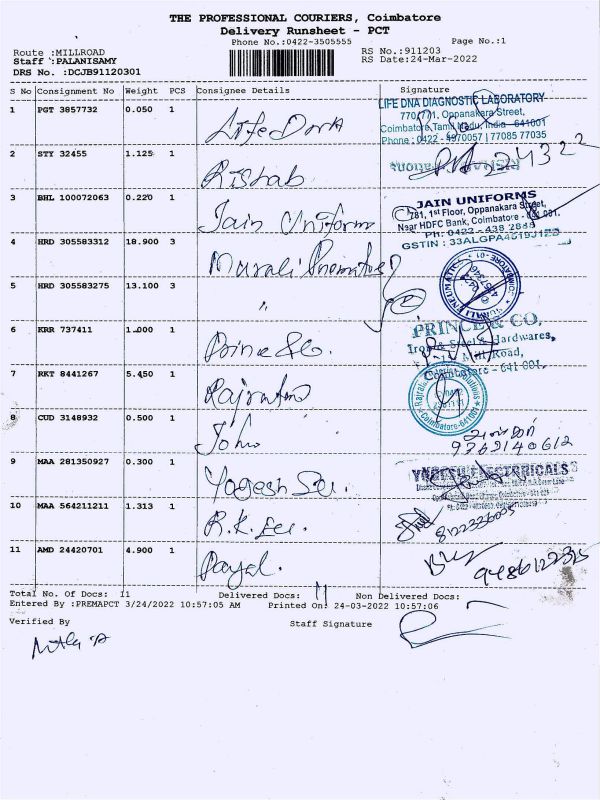 THE PROFESSIONAL COURIERS, Coimbatore
Delivery Runsheet - PCT
Phone No.:0422-3505555
Page No.:1
Route :MILLROAD
RS No.:911203
Staff :PALANISAMY
RS Date:24-Mar-2022
DRS No. :DCJB91120301
S No Consignment No Weight PCS Consignee Details Signature
1 PGT 3857732 0.050 1 Life Dora
LIFE DNA DIAGNOSTIC LABORATORY
770/771, Oppanakara Street,
Coimbatore, Tamil Nadu, India - 641001
Phone : 0422 - 4970057 | 77085 77035
2 STY 32455 1.125 1 Rishab
24322
3 BHL 100072063 0.220 1 Jain Uniform
JAIN UNIFORMS
781, 1st Floor, Oppanakara Street,
Near HDFC Bank, Coimbatore - 641 001.
Ph: 0422 - 438 2848
GSTIN : 33ALGPA4619J1ZD
4 HRD 305583312 18.900 3 Murali
5 HRD 305583275 13.100 3 "
6 KRR 737411 1.000 1 Prince & Co.
PRINCE & CO,
Iron & Steel & Hardwares,
Mill Road,
Coimbatore - 641 001.
7 RKT 8441267 5.450 1
Coimbatore-641001
8 CUD 3148932 0.500 1 John
9363140612
9 MAA 281350927 0.300 1 Yogesh Ele.
YOGESH ELECTRICALS
10 MAA 564211211 1.313 1 R.K. Ele.
8122336055
11 AMD 24420701 4.900 1 Payal.
9486122325
Total No. Of Docs: 11 Delivered Docs: 11 Non Delivered Docs:
Entered By :PREMAPCT 3/24/2022 10:57:05 AM Printed On: 24-03-2022 10:57:06
Verified By Staff Signature